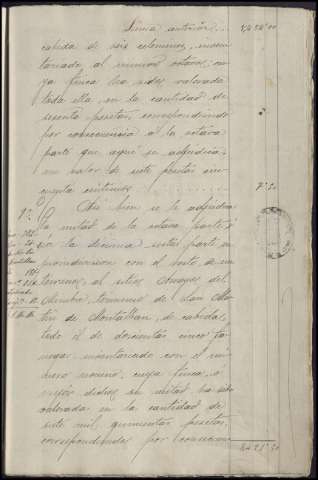 Suma anterior...
cabida de seis celemines, inven
tariado al número octavo, cu
ya finca ha sido valorada
toda ella, en la cantidad de
sesenta pesetas, correspondiendo
por consecuencia a la octava
parte que aquí se adjudica
un valor de siete pesetas cin
cuenta céntimos
7" 50
Así bien se le adjudica
la mitad de la octava parte ó
sea la decima sesta parte en
proindivision con el resto de un
terreno, al sitio
termino de San Mar
tin de Montalban, de cabida
todo él de doscientas cinco fa
negas inventariado con el nú
mero noveno, cuya finca, ó
mejor dicho su mitad ha sido
valorada en la cantidad de
siete mil quinientas pesetas,
correspondiendo por consecuen